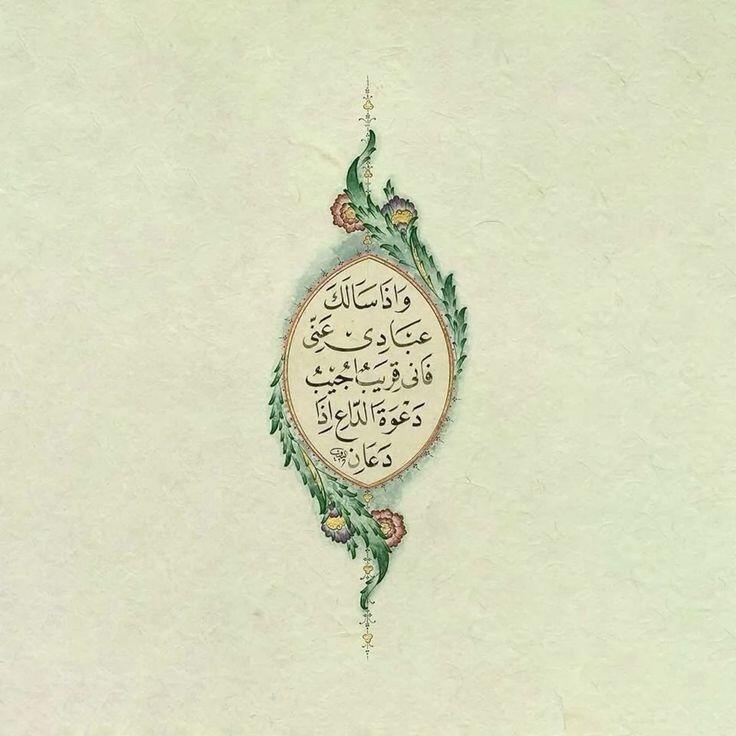 وَاِذَا سَاَلَكَ
عِبَادِى عَنِّى
فَاِنِّى قَرِيبٌ اُجِيبُ
دَعْوَةَ الدَّاعِ اِذَا
دَعَانِ